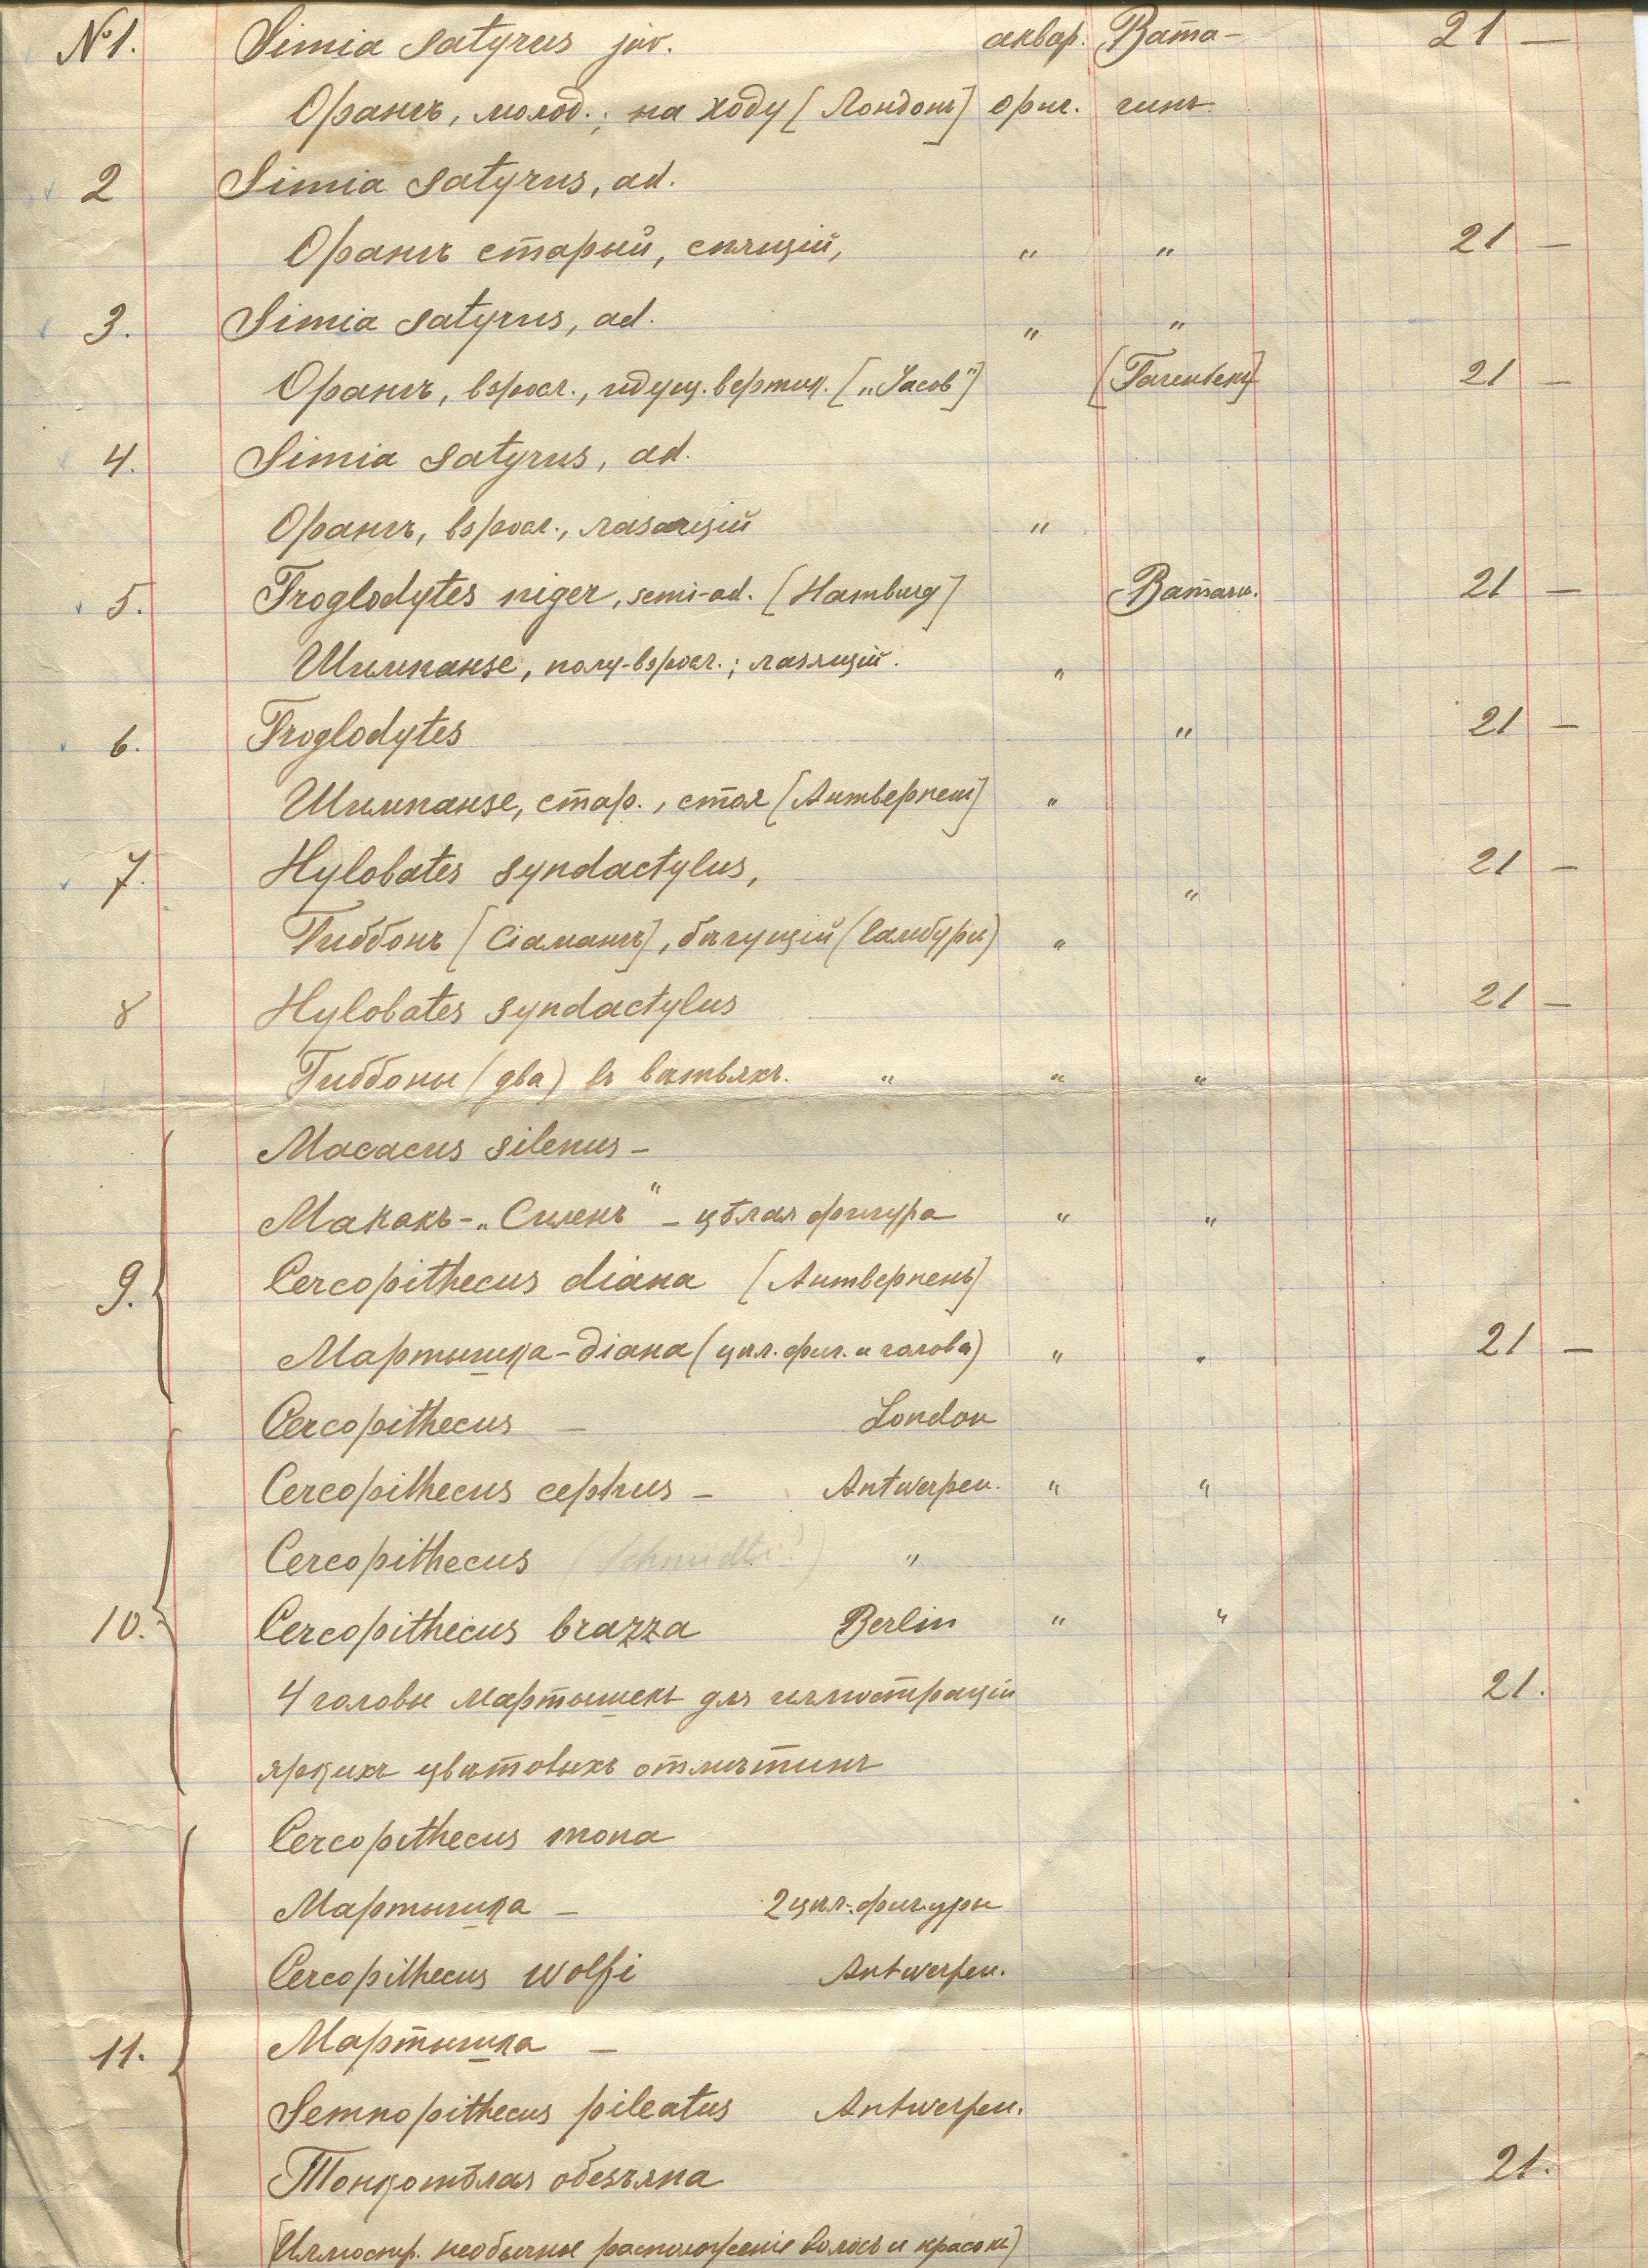 №1. Simia satyrus juv. аквар. Вата- 21 —
Орангъ, молод.; на ходу [Лондонъ] ориг. гинъ
2 Simia satyrus, ad.
Орангъ старый, спящій, " " 21 —
3. Simia satyrus, ad. " "
Орангъ, взросл., идущ. вертик. ["Jacob"] [Гагенбекъ] 21 —
4. Simia satyrus, ad.
Орангъ, взросл., лазающій "
5. Troglodytes niger, semi-ad. [Hamburg] Ватаги. 21 —
Шимпанзе, полу-взросл.; лазящій. "
6. Troglodytes " 21 —
Шимпанзе, стар., стоя [Антверпенъ] "
7. Hylobates syndactylus, " 21 —
Гиббонъ [Сіамангъ], бѣгущій (Гамбургъ) "
8 Hylobates syndactylus 21 —
Гиббоны (два) въ вѣтвяхъ. " " "
Macacus silenus —
Макакъ-„Силенъ“ — цѣлая фигура " "
9. Cercopithecus diana [Антверпенъ]
Мартышка-діана (цѣл. фиг. и голова) " " 21 —
Cercopithecus — London
Cercopithecus cephus — Antwerpen. " "
Cercopithecus (Schmidti?) "
10. Cercopithecus brazza Berlin " "
4 головы мартышекъ для иллюстраціи 21.
яркихъ цвѣтовыхъ отмѣтинъ
Cercopithecus mona
Мартышка — 2 цѣл. фигуры
Cercopithecus wolfi Antwerpen.
11. Мартышка —
Semnopithecus pileatus Antwerpen.
Тонкотѣлая обезъяна 21.
[Иллюстр. необычное расположеніе волосъ и краски]